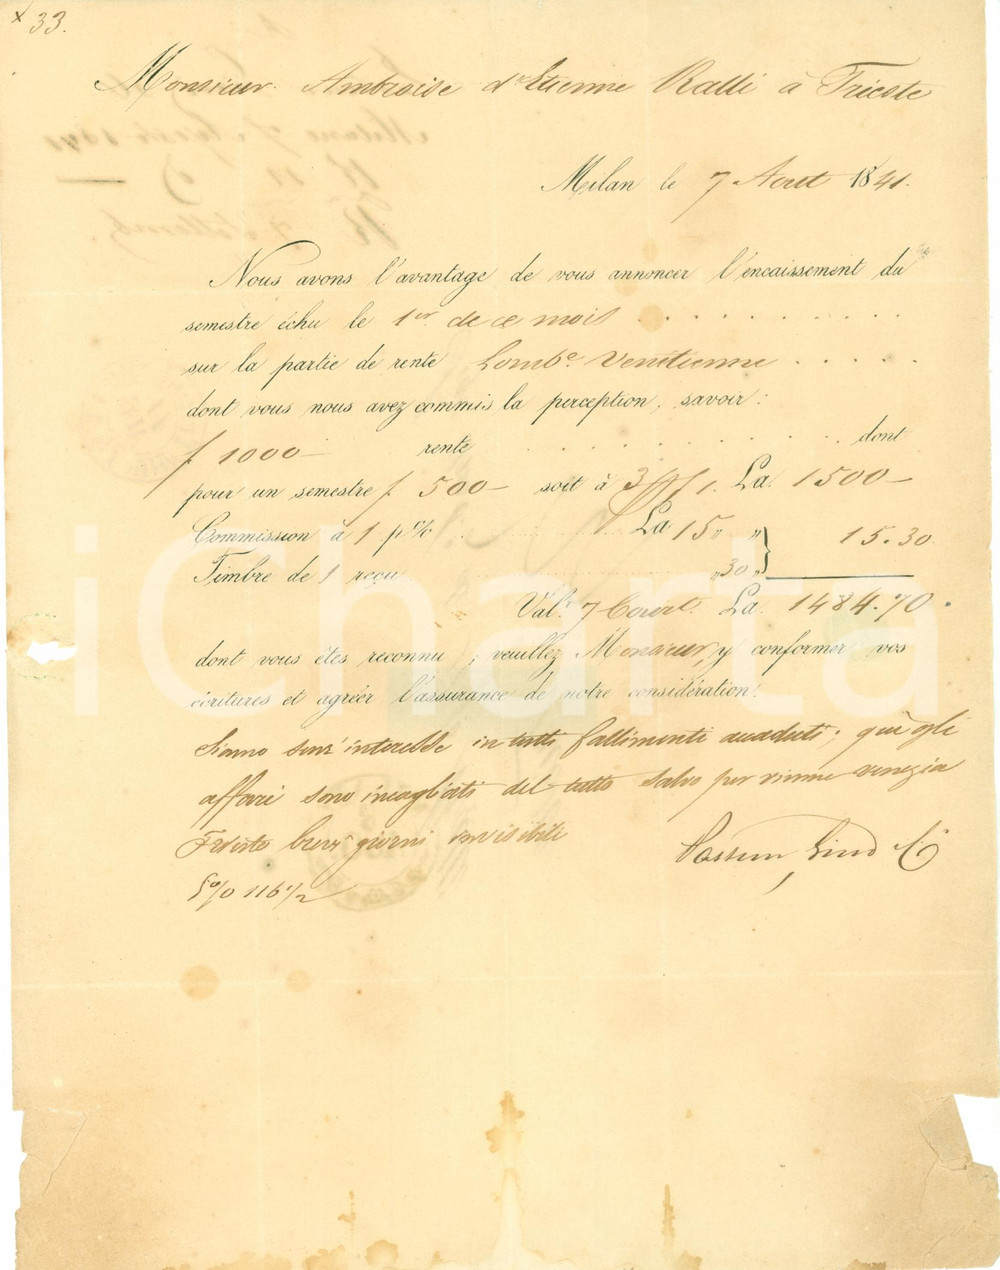 x 33.
Monsieur Ambroise d'Etienne Ralli à Trieste
Milan le 7 Aout 1841.
Nous avons l'avantage de vous annoncer l'éncaissement du
semestre échu le 1er de ce mois . . . . . . . . . . .
sur la partie de rente Lombe Vénétienne . . . . .
dont vous nous avez commis la perception, savoir :
f 1000 — rente . . . . . . . . . . . . . dont
pour un semestre f. 500 — soit à 3 f 1. La. 1500 —
Commission à 1 p% . . . La 15 „ „
15.30
Timbre de 1 reçu „ 30 „
Val. 7 Court. La. 1484.70.
dont vous êtes reconnu ; veuillez Monsieur, y conformer vos
écritures et agréér l'assurance de notre considération.
Siamo senz' interesse in tutti fallimenti accaduti ; qui gli
affari sono incagliati del tutto salvo per Vienna Venezia
Trieste giorni invisibile
5% 116 1/2
iCharta